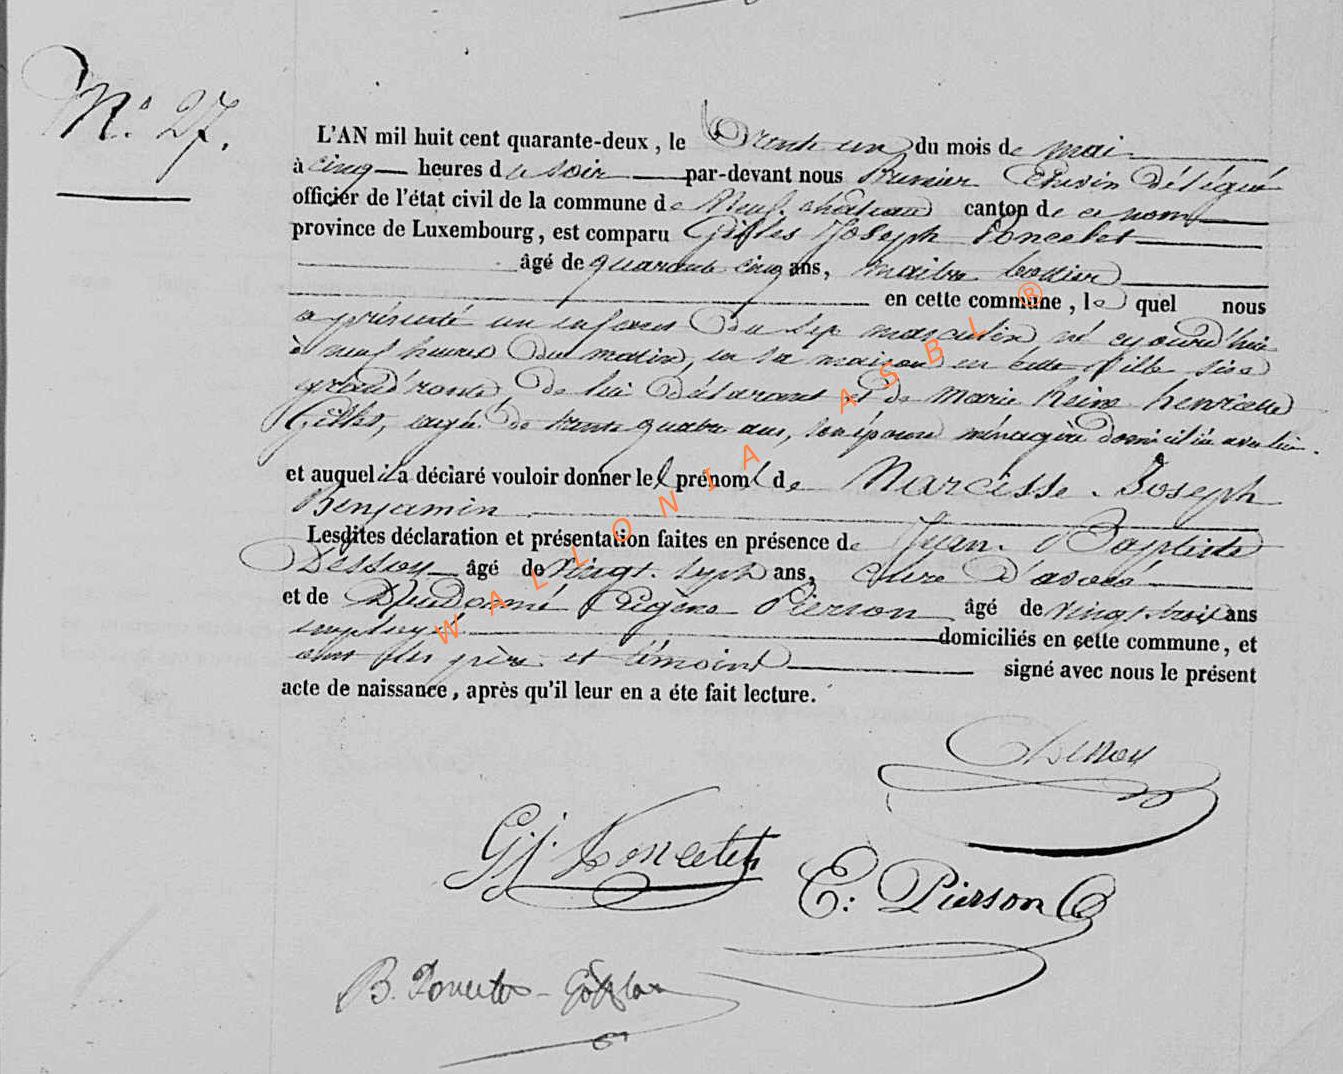 N.° 27.
L'AN mil huit cent quarante-deux, le trente un du mois de mai
à cinq heures du soir par-devant nous Premier Echevin délégué
officier de l'état civil de la commune de Neufchateau canton de ce nom
province de Luxembourg, est comparu Gilles Joseph Poncelet
âgé de quarante cinq ans, maitre
en cette commune, le quel nous
a présenté un enfant du sexe masculin né cejourd'hui
à neuf heures du matin, en sa maison en cette ville sise
grand'route de lui déclarant et de Marie Reine Henriette
Gilles, agée de trente quatre ans, son épouse ménagère domiciliée avec lui.
et auquel il a déclaré vouloir donner les prénoms de Narcisse. Joseph
Benjamin
Lesdites déclaration et présentation faites en présence de Jean. Baptiste
Dessoy âgé de vingt. sept ans, clerc d'avoué
et de Dieudonné Eugène Pierson âgé de vingt trois ans
employé domiciliés en cette commune, et
ont les père et témoins signé avec nous le présent
acte de naissance, après qu'il leur en a éte fait lecture.
Dessoy
G. J. Poncelet
E: Pierson
B. Poncelet
WALLONIA ASBL ®